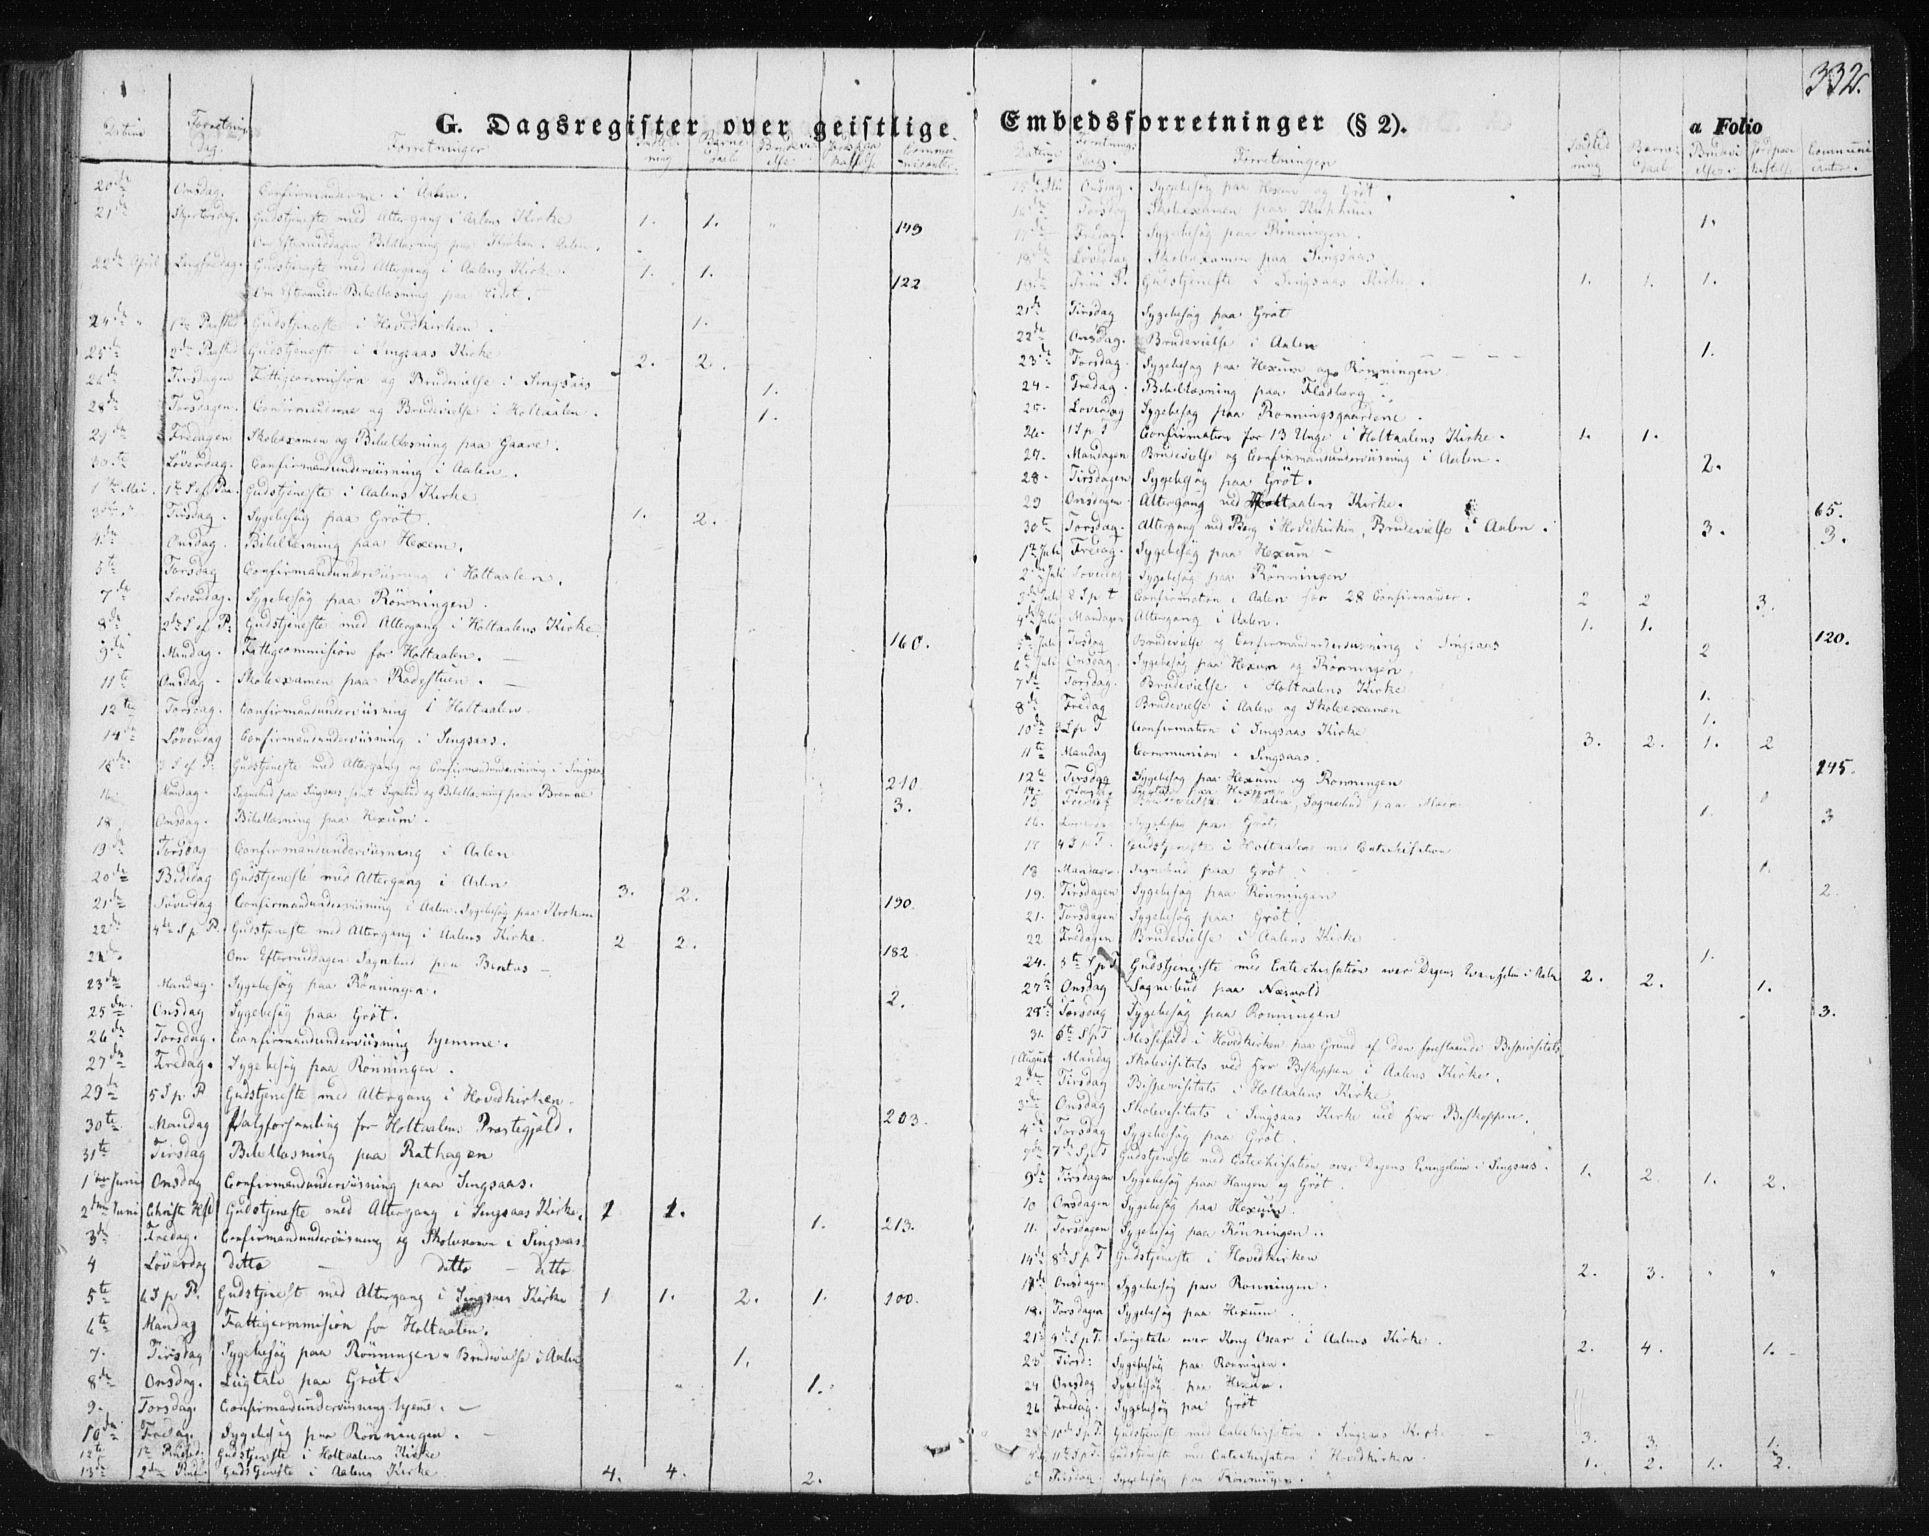 332.
G. Dagsregister over geistlige Embedsforretninger (§ 2). a Folio
Datum Forretnings Dag. Forretninger
20de Onsdag. Confirmanderne i Aalen.
21de Skjertorsdag. Gudstjeneste med Altergang i Aalens Kirke 1. 1. 149
Om Eftermiddagen Bibellæsning paa Kirken. Aalen.
22de April Langfredag. Gudstjeneste med Altergang i Aalens Kirke. 1. 1. 122
24de 1te Paaskd Gudstjeneste i Hovedkirken. 1.
25de 2de Paaskd Gudstjeneste i Singsaas Kirke 2. 2.
26de Tirsdagen Fattigcommision og Brudevielse i Singsaas 1.
28de Torsdagen. Confirmanderne og Brudevielse i Holtaalen. 1.
29de Fredagen Skoleexamen og Bibellæsning paa Gaare.
30te Löverdag. Confirmandunderviisning i Aalen.
1te Mai. 1te S ef Paa. Gudstjeneste i Aalens Kirke
3de Tirsdag. Sygebesög paa Gröt. 1. 2.
4de Onsdag. Bibellæsning paa Hexem.
5te Torsdag Confirmandunderviisning i Holtaalen.
7de Loverdag. Sygebesög paa Rönningen.
8de 2de S ef P. Gudstjeneste med Altergang i Holtaalens Kirke. 160.
9de Mandag. Fattigcommision for Holtaalen.
11te Onsdag. Skoleexamen paa Rodestuen.
12te Torsdag. Confirmandunderviisning i Holtaalen
14de Löverdag Confirmandunderviisning i Singsaas.
15de 3 S ef P. Gudstjeneste med Altergang og Confirmandunderviisning i Singsaas 210
16 Mandag. 3.
18 Onsdag. Bibellæsning paa Hexum.
19de Torsdag Confirmandunderviisning i Aalen
20de Bededag Gudstjeneste med Altergang i Aalen 3. 2. 190.
21de Löverdag Confirmandunderviisning i Aalen. Sygebesög paa Kroken
22de 4de S p P. Gudstjeneste med Altergang i Aalens Kirke. 2 2. 182
Om Eftermiddagen Sognebud paa Bentas
23de Mandag. Sygebesög paa Rönningen. 2.
25de Onsdag Sygebesög paa Gröt.
26de Torsdag. Confirmandunderviisning hjemme.
27de Fredag. Sygebesög paa Rönningen.
29de 5 S p P Gudstjeneste med Altergang i Hovedkirken. 203.
30te Mandag Valgforsamling for Holtaalens Præstegjæld.
31te Tirsdag Bibellæsning paa Rathagen
1te Juni Onsdag Confirmandunderviisning paa Singsaas.
2den Juni Christi Hf Gudstjeneste med Altergang i Singsaas Kirke. 1 1. 1. 213.
3de Fredag. Confirmandunderviisning og Skoleexamen i Singsaas.
4 Löverdag ditto ditto ditto
5te 6 S p P. Gudstjeneste med Altergang i Singsaas Kirke 1 1. 2. 1. 200.
6te Mandag Fattigcommision for Holtaalen.
7. Tirsdag Sygebesög paa Rönningen. Brudevielse i Aalen 1.
8de Onsdag. Liigtale paa Gröt. 1.
9. Torsdag. Confirmandunderviisning hjeme.
10de Fredag. Sygebesög paa Rönningen.
12te 1te Pindsd. Gudstjeneste i Holtaalens Kirke
13de 2den Pind. Gudstjeneste i Aalens Kirke 4. 4. 2.
Datum Forretnings Dag. Forretninger
15de Juni Onsdag. Sygebesög paa Hexem og Gröt.
16de Torsdag Skoleexamen paa Kirkhuus 1.
17de Fredag. Sygebesög paa Rönningen.
18de Löverdag Skoleexamen paa Singsaas
19de Trin S. Gudstjeneste i Singsaas Kirke. 1. 1. 1.
21de Tirsdag Sygebesög paa Gröt
22de Onsdag. Brudevielse i Aalen 1.
23de Torsdag. Sygebesög paa Hexum og Rönningen
24. Fredag. Bibellæsning paa Fladberg
25. Loverdag Sygebesög paa Rönningsgaardene.
26. 1 S p T Confirmation for 13 Unge i Holtaalens Kirke. 1. 1.
27. Mandagen Brudevielse og Confirmandunderviisning i Aalen. 2.
28. Tirsdagen Sygebesög paa Gröt.
29 Onsdagen Altergang ved Holtaalens Kirke. 65.
30te Torsdag. Altergang ved Berg i Hovedkirken, Brudevielse i Aalen. 3. 3.
1te Juli Fredag. Sygebesög paa Hexum
2den Juli Loverdag Sygebesög paa Rönningen
3de Juli 2 S p T Confirmation i Aalen for 28 Confirmander. 2 2 3.
4de Juli Mandagen Altergang i Aalen. 1. 1. 120.
5te Juli Tirsdag Brudevielse og Confirmandunderviisning i Singsaas 2
6te Juli Onsdag. Sygebesög paa Hexum og Rönningen.
7de Torsdag. Brudevielse i Holtaalens Kirke 1.
8de Fredag Brudevielse i Aalen og Skoleexamen 1.
10de 3 S p T Confirmation i Singsaas Kirke 3. 2. 1. 2
11te Mandag Communion i Singsaas. 245.
12te Tirsdag Sygebesög paa Hexum og Rönningen
15 Fredag Brudevielse i Aalen, Sognebud paa Moen 1. 3
16. Sygebesög paa Gröt
17 4 S p T. Gudstjeneste i Holtaalen med Catechisation
18 Mandagen Sognebud paa Gröt 1. 2.
19. Tirsdagen Sygebesög paa Rönningen
21. Torsdagen Sygebesög paa Gröt
22 Fredagen Brudevielse i Aalens Kirke 1.
24. 5te S p T Gudstjeneste med Catechisation over Dagens Evangelium i Aalen 2. 2. 1.
27de Onsdag Sognebud paa Næsvold 3.
28de Torsdag Sygebesög paa Rönningen
31. 6te S p T Messefald i Hovedkirken paa Grund af den forestaaende Bispevisitats
1 August Mandag Skolevisitats ved Herr Biskoppen i Aalens Kirke.
2den Tirsdag Bispevisitats i Holtaalens Kirke
3de Onsdag Skolevisitats i Singsaas Kirke ved Herr Biskoppen.
4de Torsdag Sygebesög paa Gröt.
7de 7de S p T Gudstjeneste med Catechisation over Dagens Evangelium i Singsaas. 1. 2 1. 2.
9de Tirsdagen Sygebesög paa Haugen og Gröt.
10 Onsdagen Sygebesög paa Hexum.
11. Torsdagen Sygebesög paa Rönningen.
14de 8de S p T Gudstjeneste i Hovedkirken 2. 3.
17de Onsdagen Sygebesög paa Rönningen.
18. Torsdagen Sygebesög paa Hexum.
21de 9de S p T. Sörgetale over Kong Oscar i Aalens Kirke. 2. 4. 1.
23 Tirsd: Sygebesög paa Rönningen.
24 Onsdag Sygebesög paa Hexum.
26 Fredag. Sygebesög paa Gröt
28 10de S p T. Gudstjeneste med Catechisation i Singsaas Kirke 3. 3. 1.
11te S p T. Gudstjeneste med Catechisation i Hovedkirken. 1. 2. 1. 2.
6te Tirsdag. Sygebesög paa Rönningen.